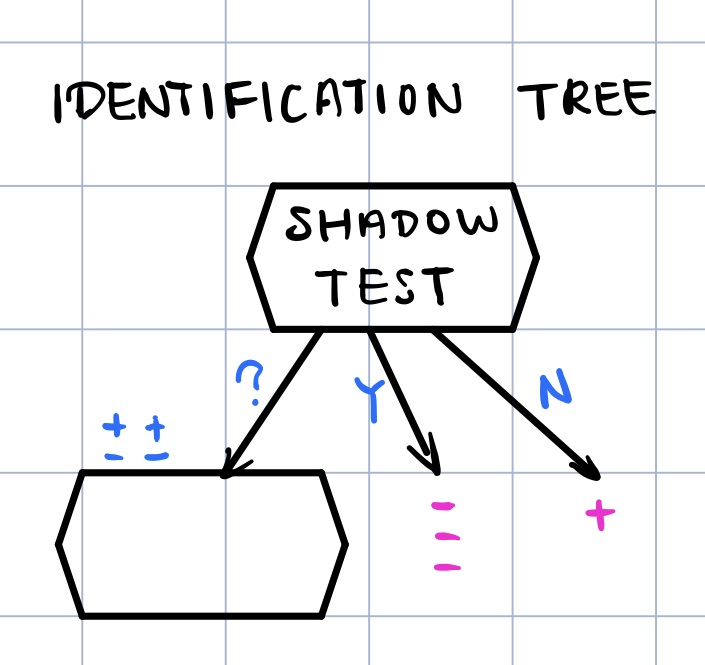 IDENTIFICATION TREE
SHADOW
TEST
? Y N
+ +
- -
-
-
-
+